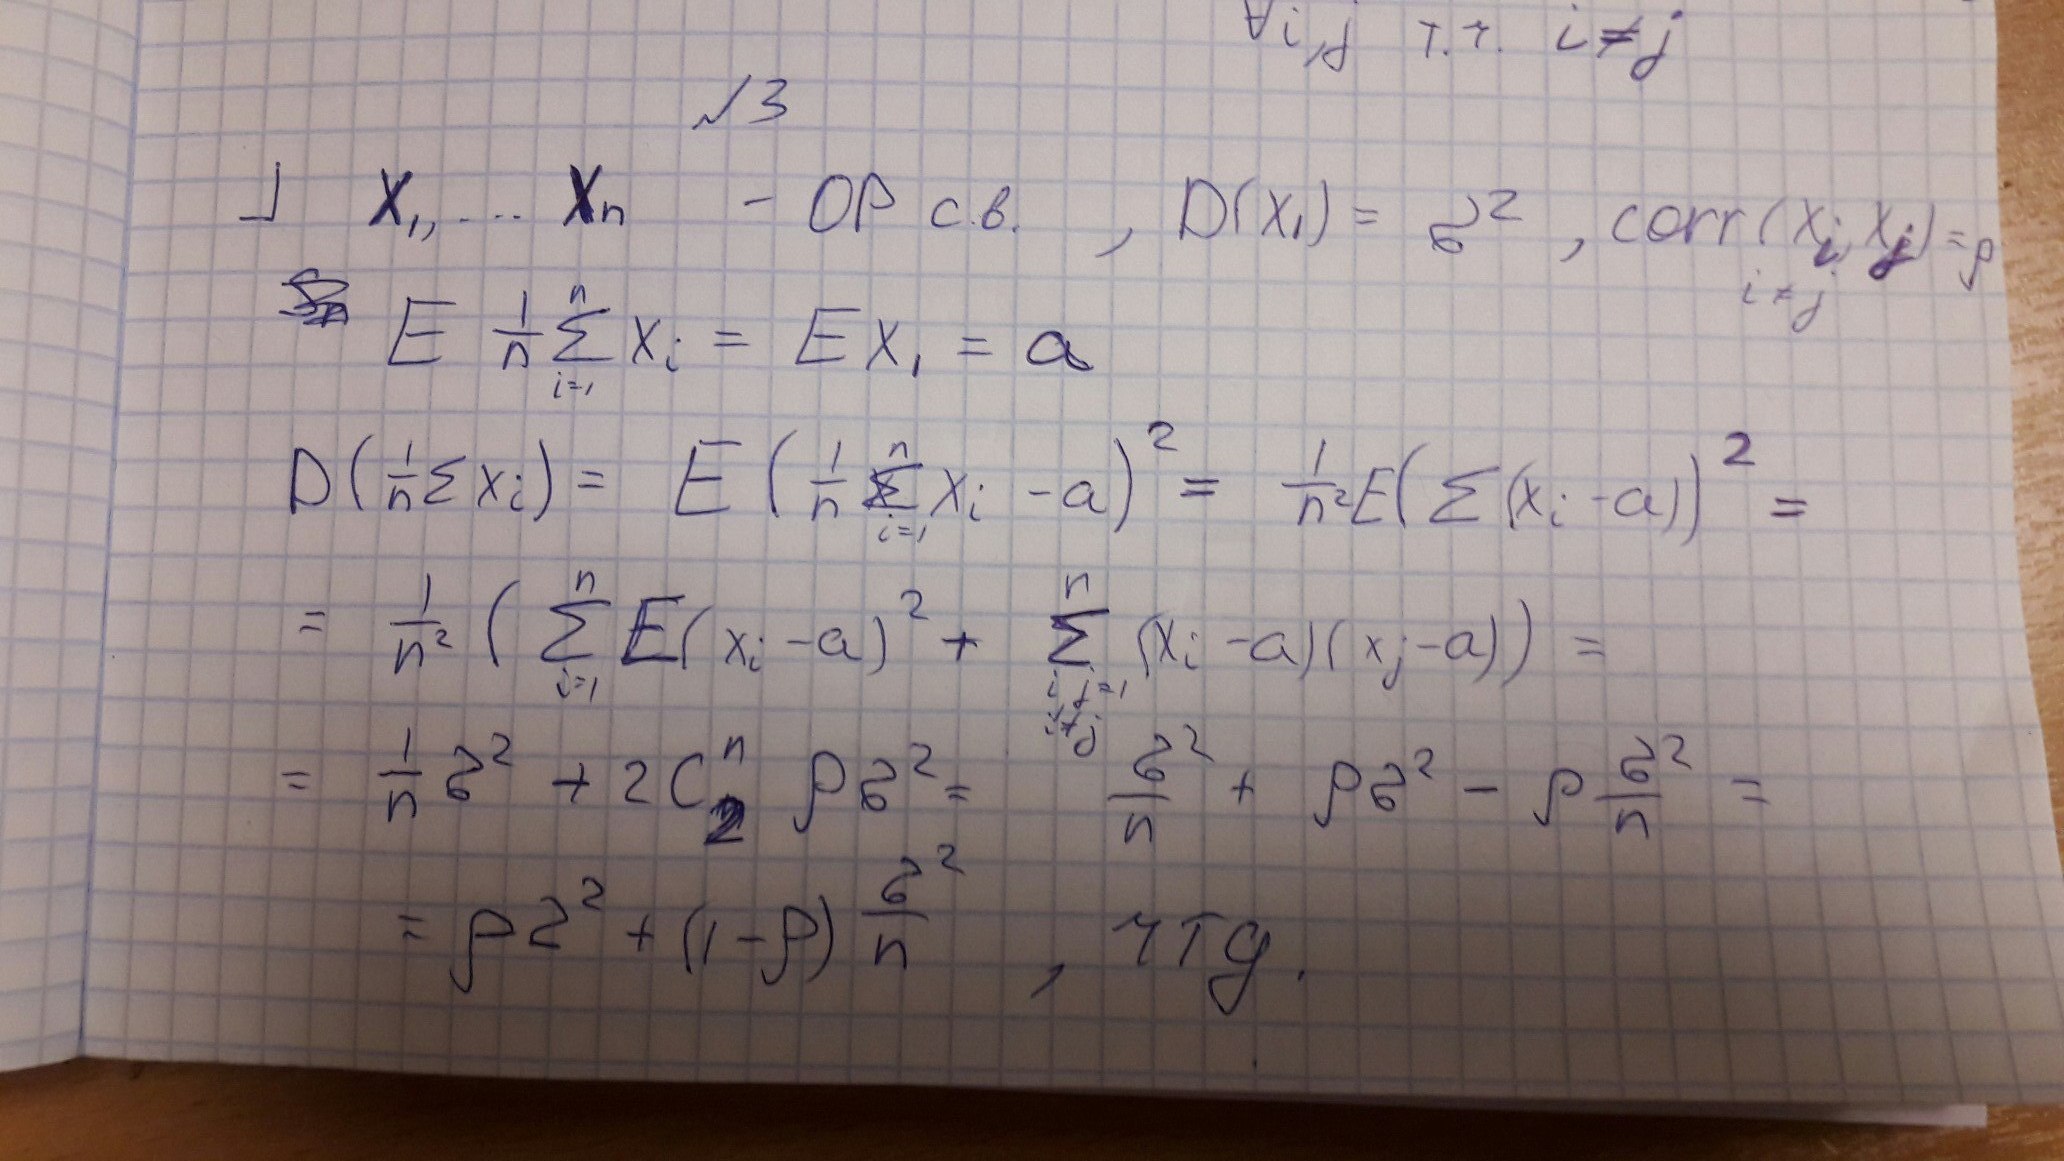 ∀i,j т.ч. i≠j
№3
⅃ X₁,... Xₙ - ОР с.в. , D(X₁) = σ² , corr(Xᵢ,Xⱼ)=ρ
i≠j
E 1/n Σᵢ₌₁ⁿ Xᵢ = EX₁ = a
D(1/n ΣXᵢ) = E(1/n Σᵢ₌₁ⁿ Xᵢ - a)² = 1/n² E(Σ(Xᵢ - a))² =
= 1/n² (Σᵢ₌₁ⁿ E(Xᵢ - a)² + Σⁿ_{i,j=1, i≠j} (Xᵢ - a)(Xⱼ - a)) =
= 1/n σ² + 2C₂ⁿ ρσ² = σ²/n + ρσ² - ρ σ²/n =
= ρσ² + (1-ρ) σ²/n , чтд.